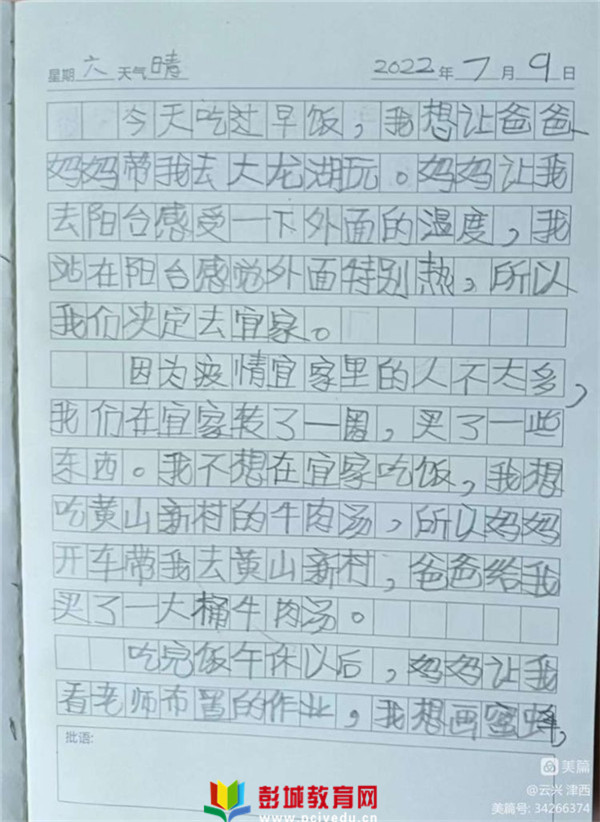 星期 六 天气 晴 2022 年 7 月 9 日
今天吃过早饭，我想让爸爸
妈妈带我去大龙湖玩。妈妈让我
去阳台感受一下外面的温度，我
站在阳台感觉外面特别热，所以
我们决定去宜家。
因为疫情宜家里的人不太多，
我们在宜家转了一圈，买了一些
东西。我不想在宜家吃饭，我想
吃黄山新村的牛肉汤，所以妈妈
开车带我去黄山新村，爸爸给我
买了一大桶牛肉汤。
吃完饭午休以后，妈妈让我
看老师布置的作业，我想画蜜蜂，
批语:
美篇
@云兴 津西
美篇号: 34266374
彭城教育网
www.pcjyedu.cn